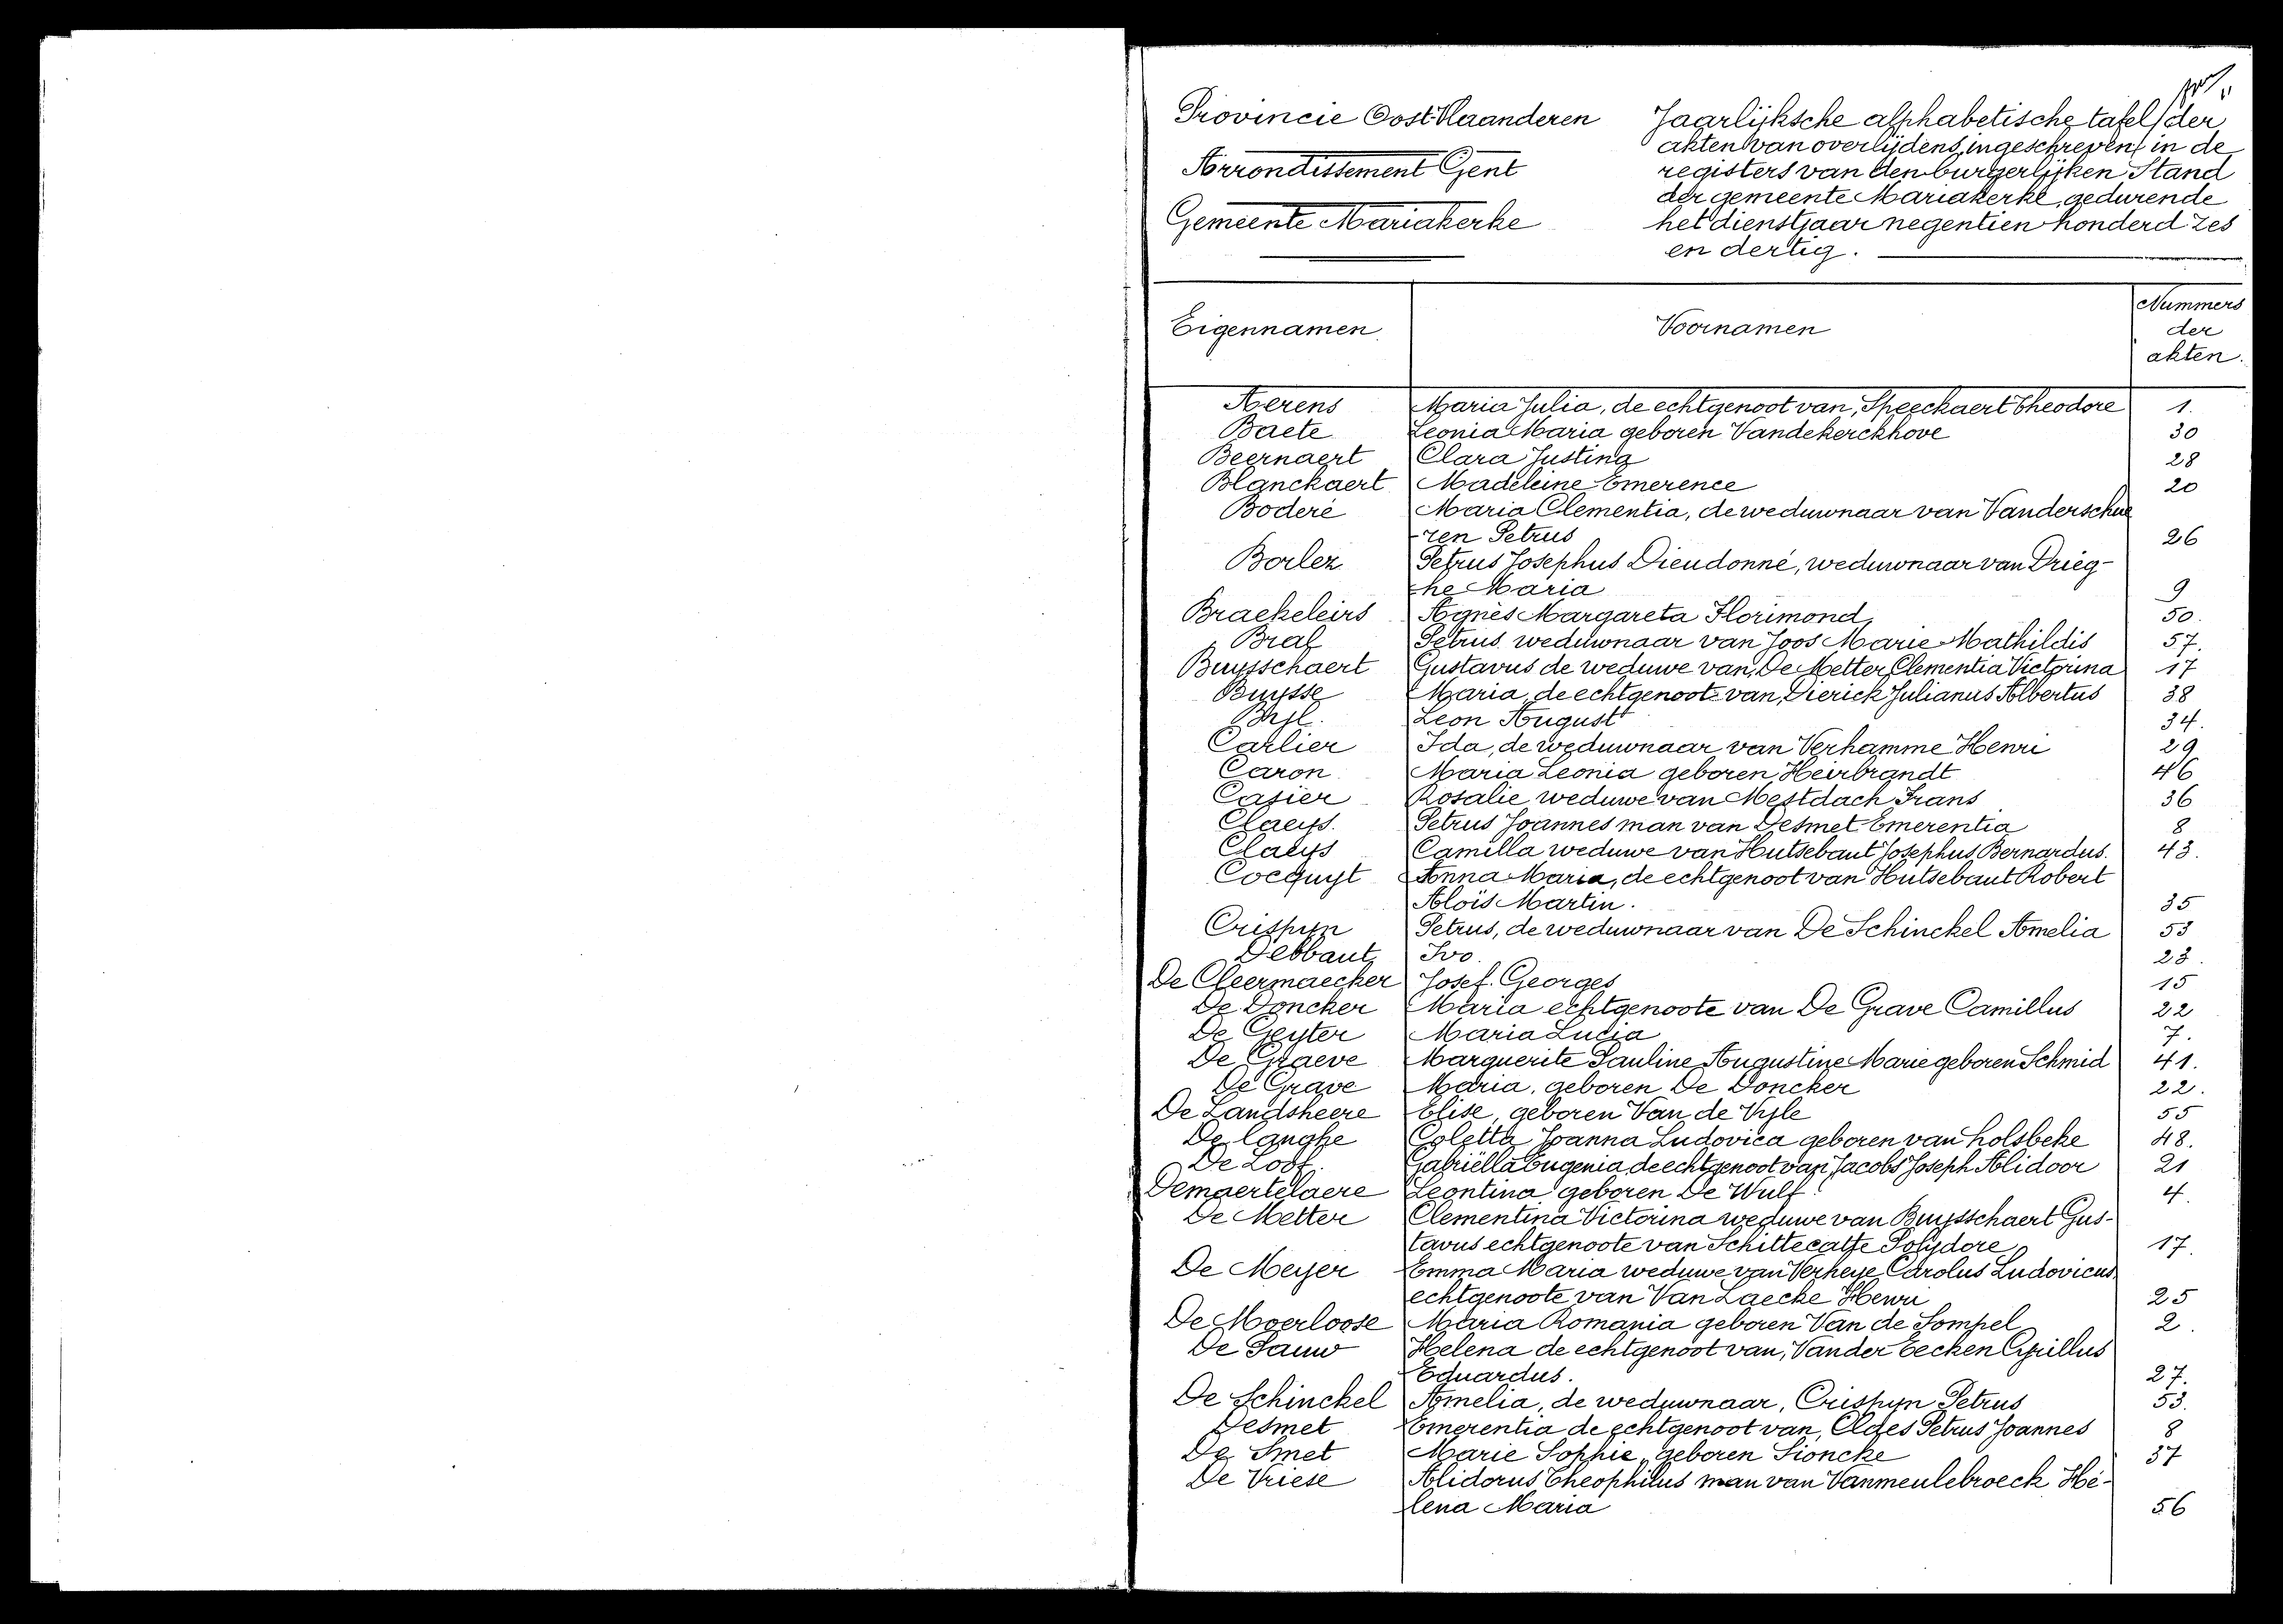 Provincie Oost-Vlaanderen
Arrondissement Gent
Gemeente Mariakerke
Jaarlijksche alphabetische tafel der
akten van overlijdens, ingeschreven in de
registers van den burgerlijken Stand
der gemeente Mariakerke, gedurende
het dienstjaar negentien honderd zes
en dertig.
Eigennamen Voornamen Nummers
der
akten.
Aerens Maria Julia, de echtgenoot van, Speeckaert Theodore 1.
Baete Leonia Maria geboren Vandekerckhove 30
Beernaert Clara Justina 28
Blanckaert Madeleine Emerence 20
Boderé Maria Clementia, de weduwnaar van Vanderschue
-ren Petrus 26
Borlez Petrus Josephus Dieudonné, weduwnaar van Drieg-
he Maria 9
Braekeleirs Agnès Margareta Florimond, 50.
Bral Petrus weduwnaar van Joos Marie Mathildis 57.
Buysschaert Gustavus de weduwe van, De Metter Clementia Victorina 17
Buysse Maria, de echtgenoote van, Dierick Julianus Albertus 38
Byl. Leon August 34.
Carlier Ida, de weduwnaar van Verhamme Henri 29
Caron Maria Leonia geboren Heirbrandt 46
Casier Rosalie weduwe van Mestdach Frans 36
Claeys. Petrus Joannes man van Desmet Emerentia 8
Claeys Camilla weduwe van Hutsebaut Josephus Bernardus. 43.
Cocquyt Anna Maria, de echtgenoot van Hutsebaut Robert
Aloïs Martin. 35
Crispyn Petrus, de weduwnaar van De Schinckel Amelia 53
Debbaut, Ivo. 23.
De Cleermaecker Josef. Georges 15
De Doncker Maria echtgenoote van De Grave Camillus 22
De Geyter Maria Lucia 7.
De Graeve Marguerite Pauline Augustine Marie geboren Schmid 41.
De Grave Maria, geboren De Doncker 22.
De Landsheere Elise, geboren Van de Vyle 55
De Langhe Coletta Joanna Ludovica geboren van Holsbeke 48.
De Loof. Gabriëlla Eugenia de echtgenoot van Jacobs Joseph Alidoor 21
Demaertelaere Leontina geboren De Wulf. 4.
De Metter Clementina Victorina weduwe van Buysschaert Gus-
tavus echtgenoote van Schittecatte Polydore 17.
De Meyer Emma Maria weduwe van Verheye Carolus Ludovicus
echtgenoote van Van Laecke Henri 25
De Moerloose Maria Romania geboren Van de Sompel 2.
De Pauw Helena de echtgenoot van, Vander Eecken Cyrillus
Eduardus. 27.
De Schinckel Amelia, de weduwnaar, Crispyn Petrus 53.
Desmet Emerentia de echtgenoot van, Claes Petrus Joannes 8
De Smet Marie Sophie, geboren Sioncke 37
De Vriese Alidorus Theophilus man van Vanmeulebroeck Hé-
lena Maria 56